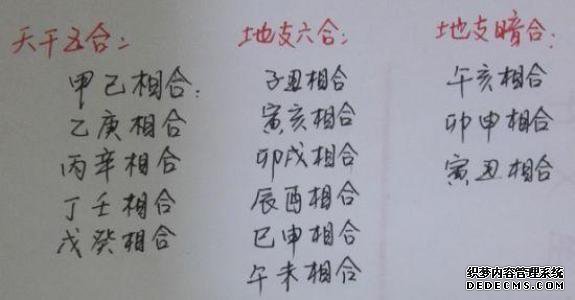 天干五合：
甲己相合：
乙庚相合
丙辛相合
丁壬相合
戊癸相合
地支六合：
子丑相合
寅亥相合
卯戌相合
辰酉相合
巳申相合
午未相合
地支暗合：
午亥相合
卯申相合
寅丑相合
织梦内容管理系统
DEDECMS.COM